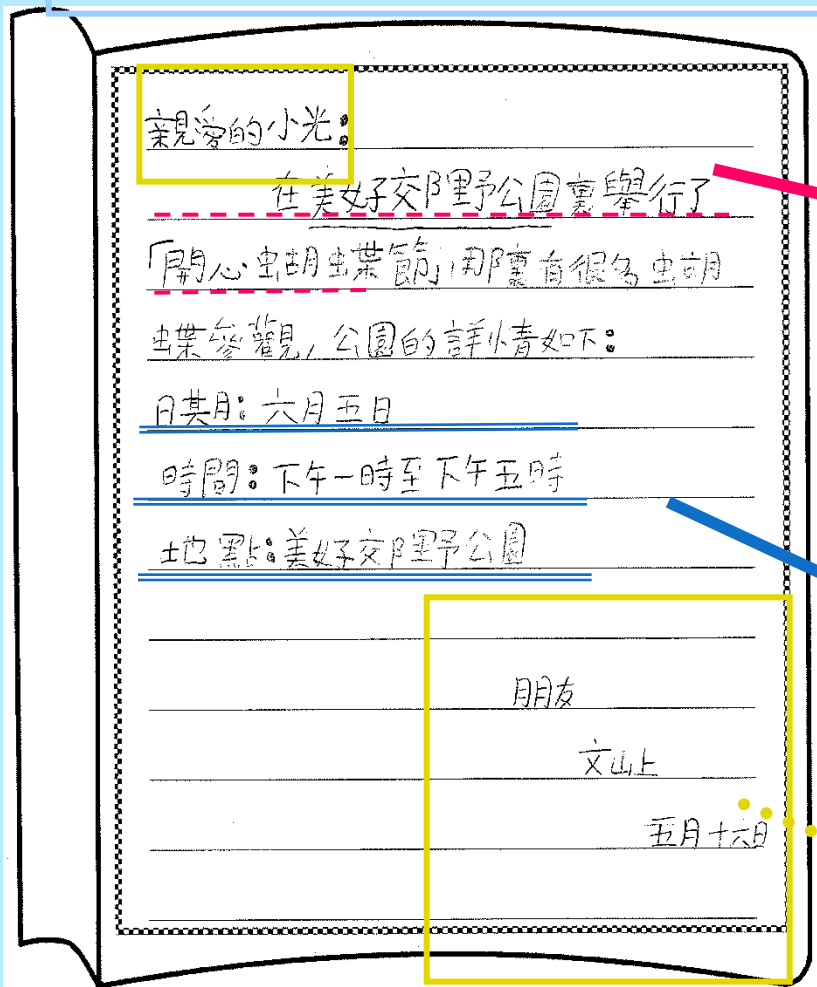 親愛的小光：
在美好交郊野公園裏舉行了
「開心蝴蝶節」,那裏有很多蝴
蝶參觀,公園的詳情如下：
日期：六月五日
時間：下午一時至下午五時
地點：美好郊野公園
朋友
文山上
五月十六日